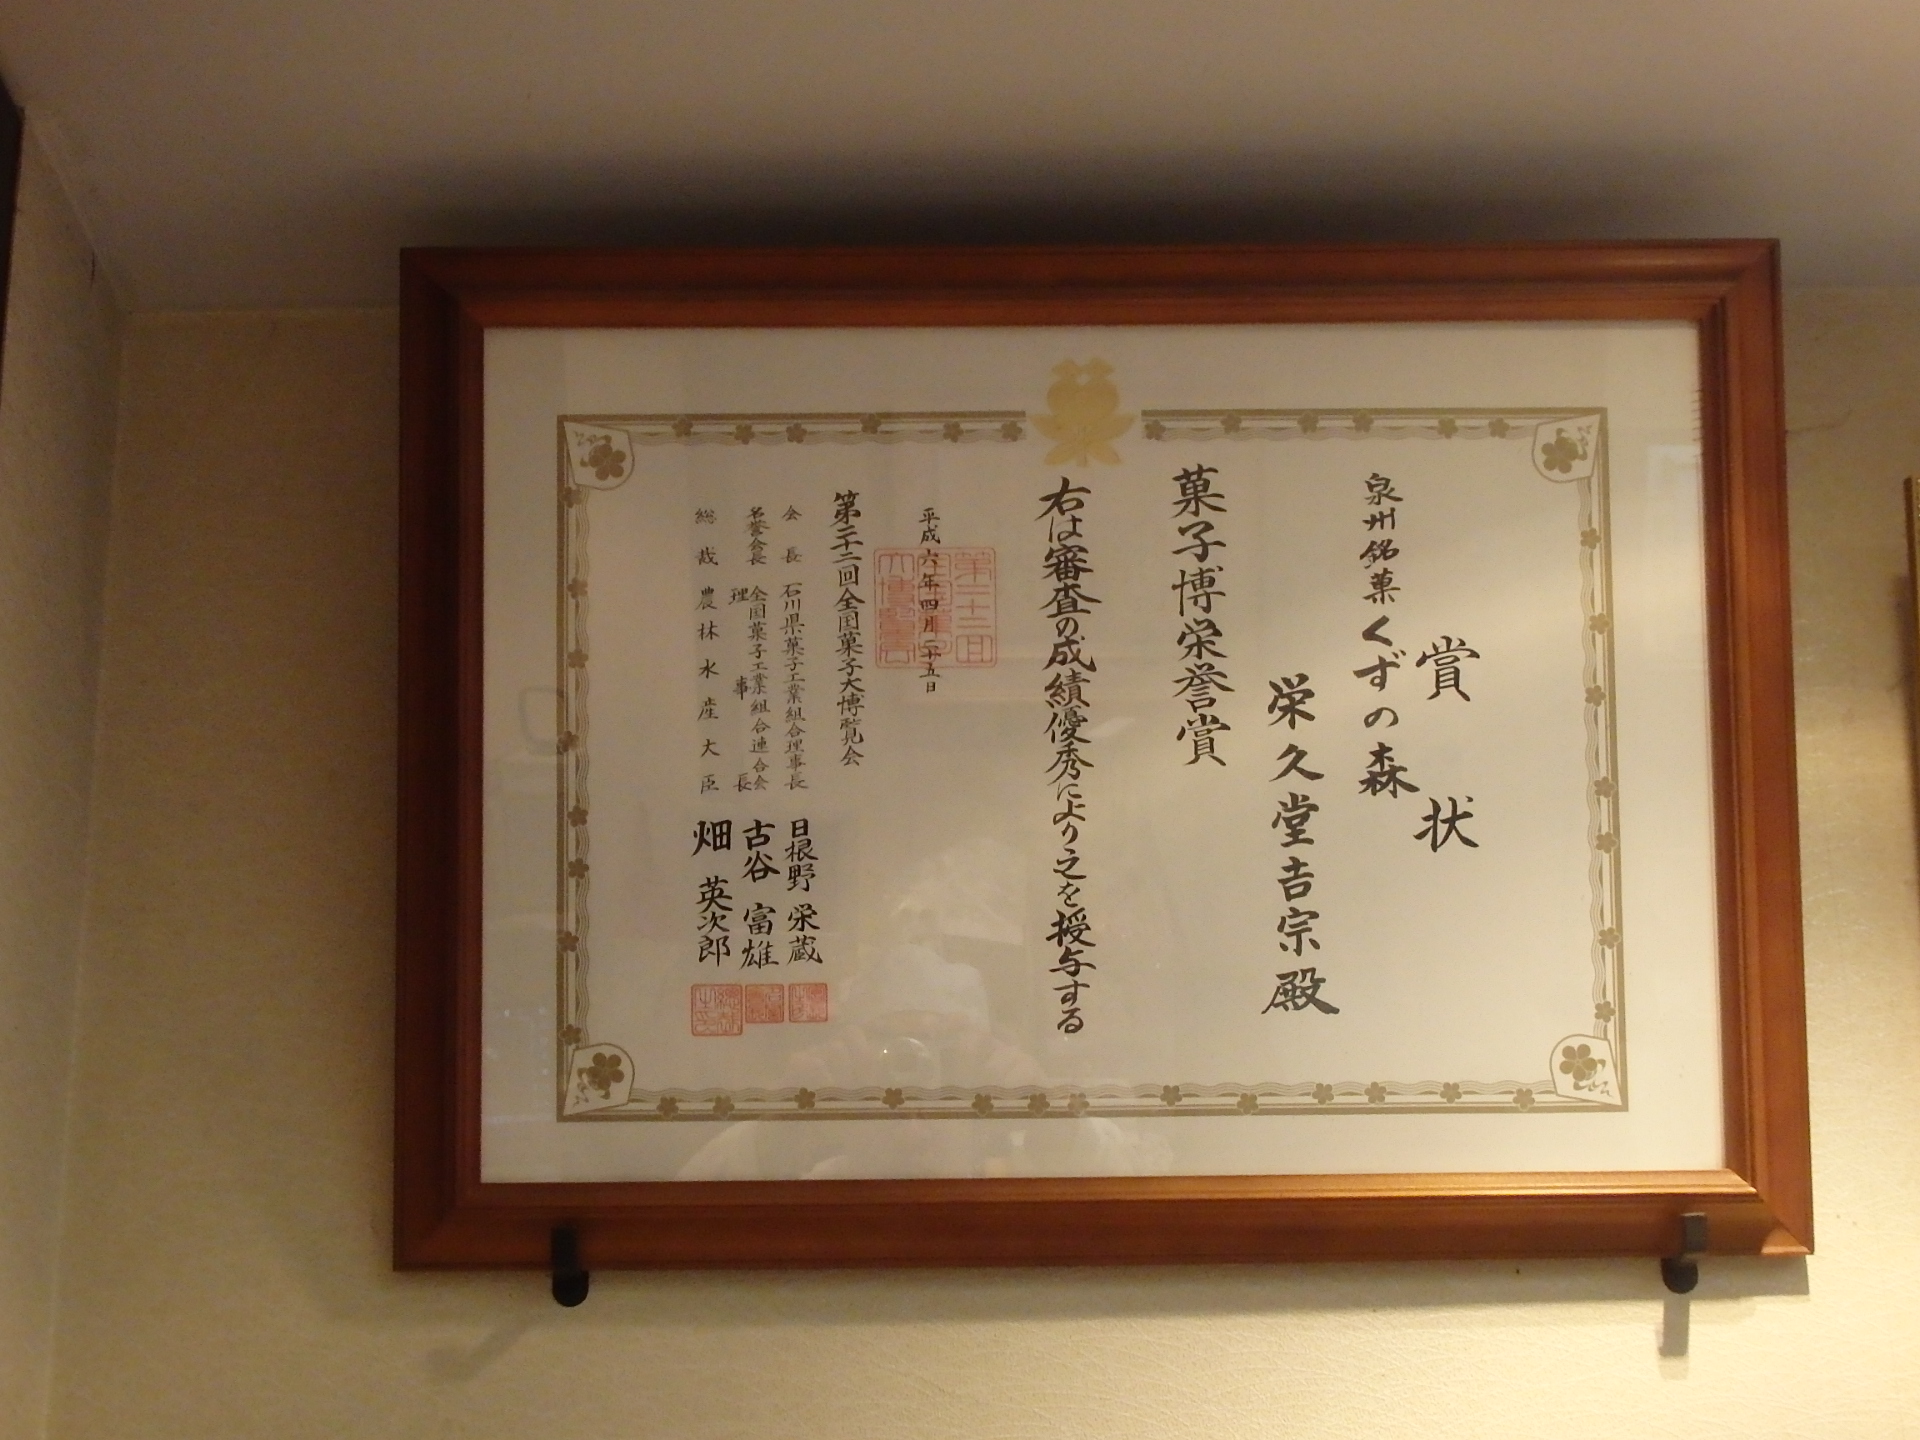 賞状
泉州銘菓くずの森
栄久堂吉宗殿
菓子博栄誉賞
右は審査の成績優秀により之を授与する
平成六年四月二十五日
第二十二回全国菓子大博覧会
会長 石川県菓子工業組合理事長 日根野 栄蔵
名誉会長 全国菓子工業組合連合会理事長 古谷 富雄
総裁 農林水産大臣 畑 英次郎